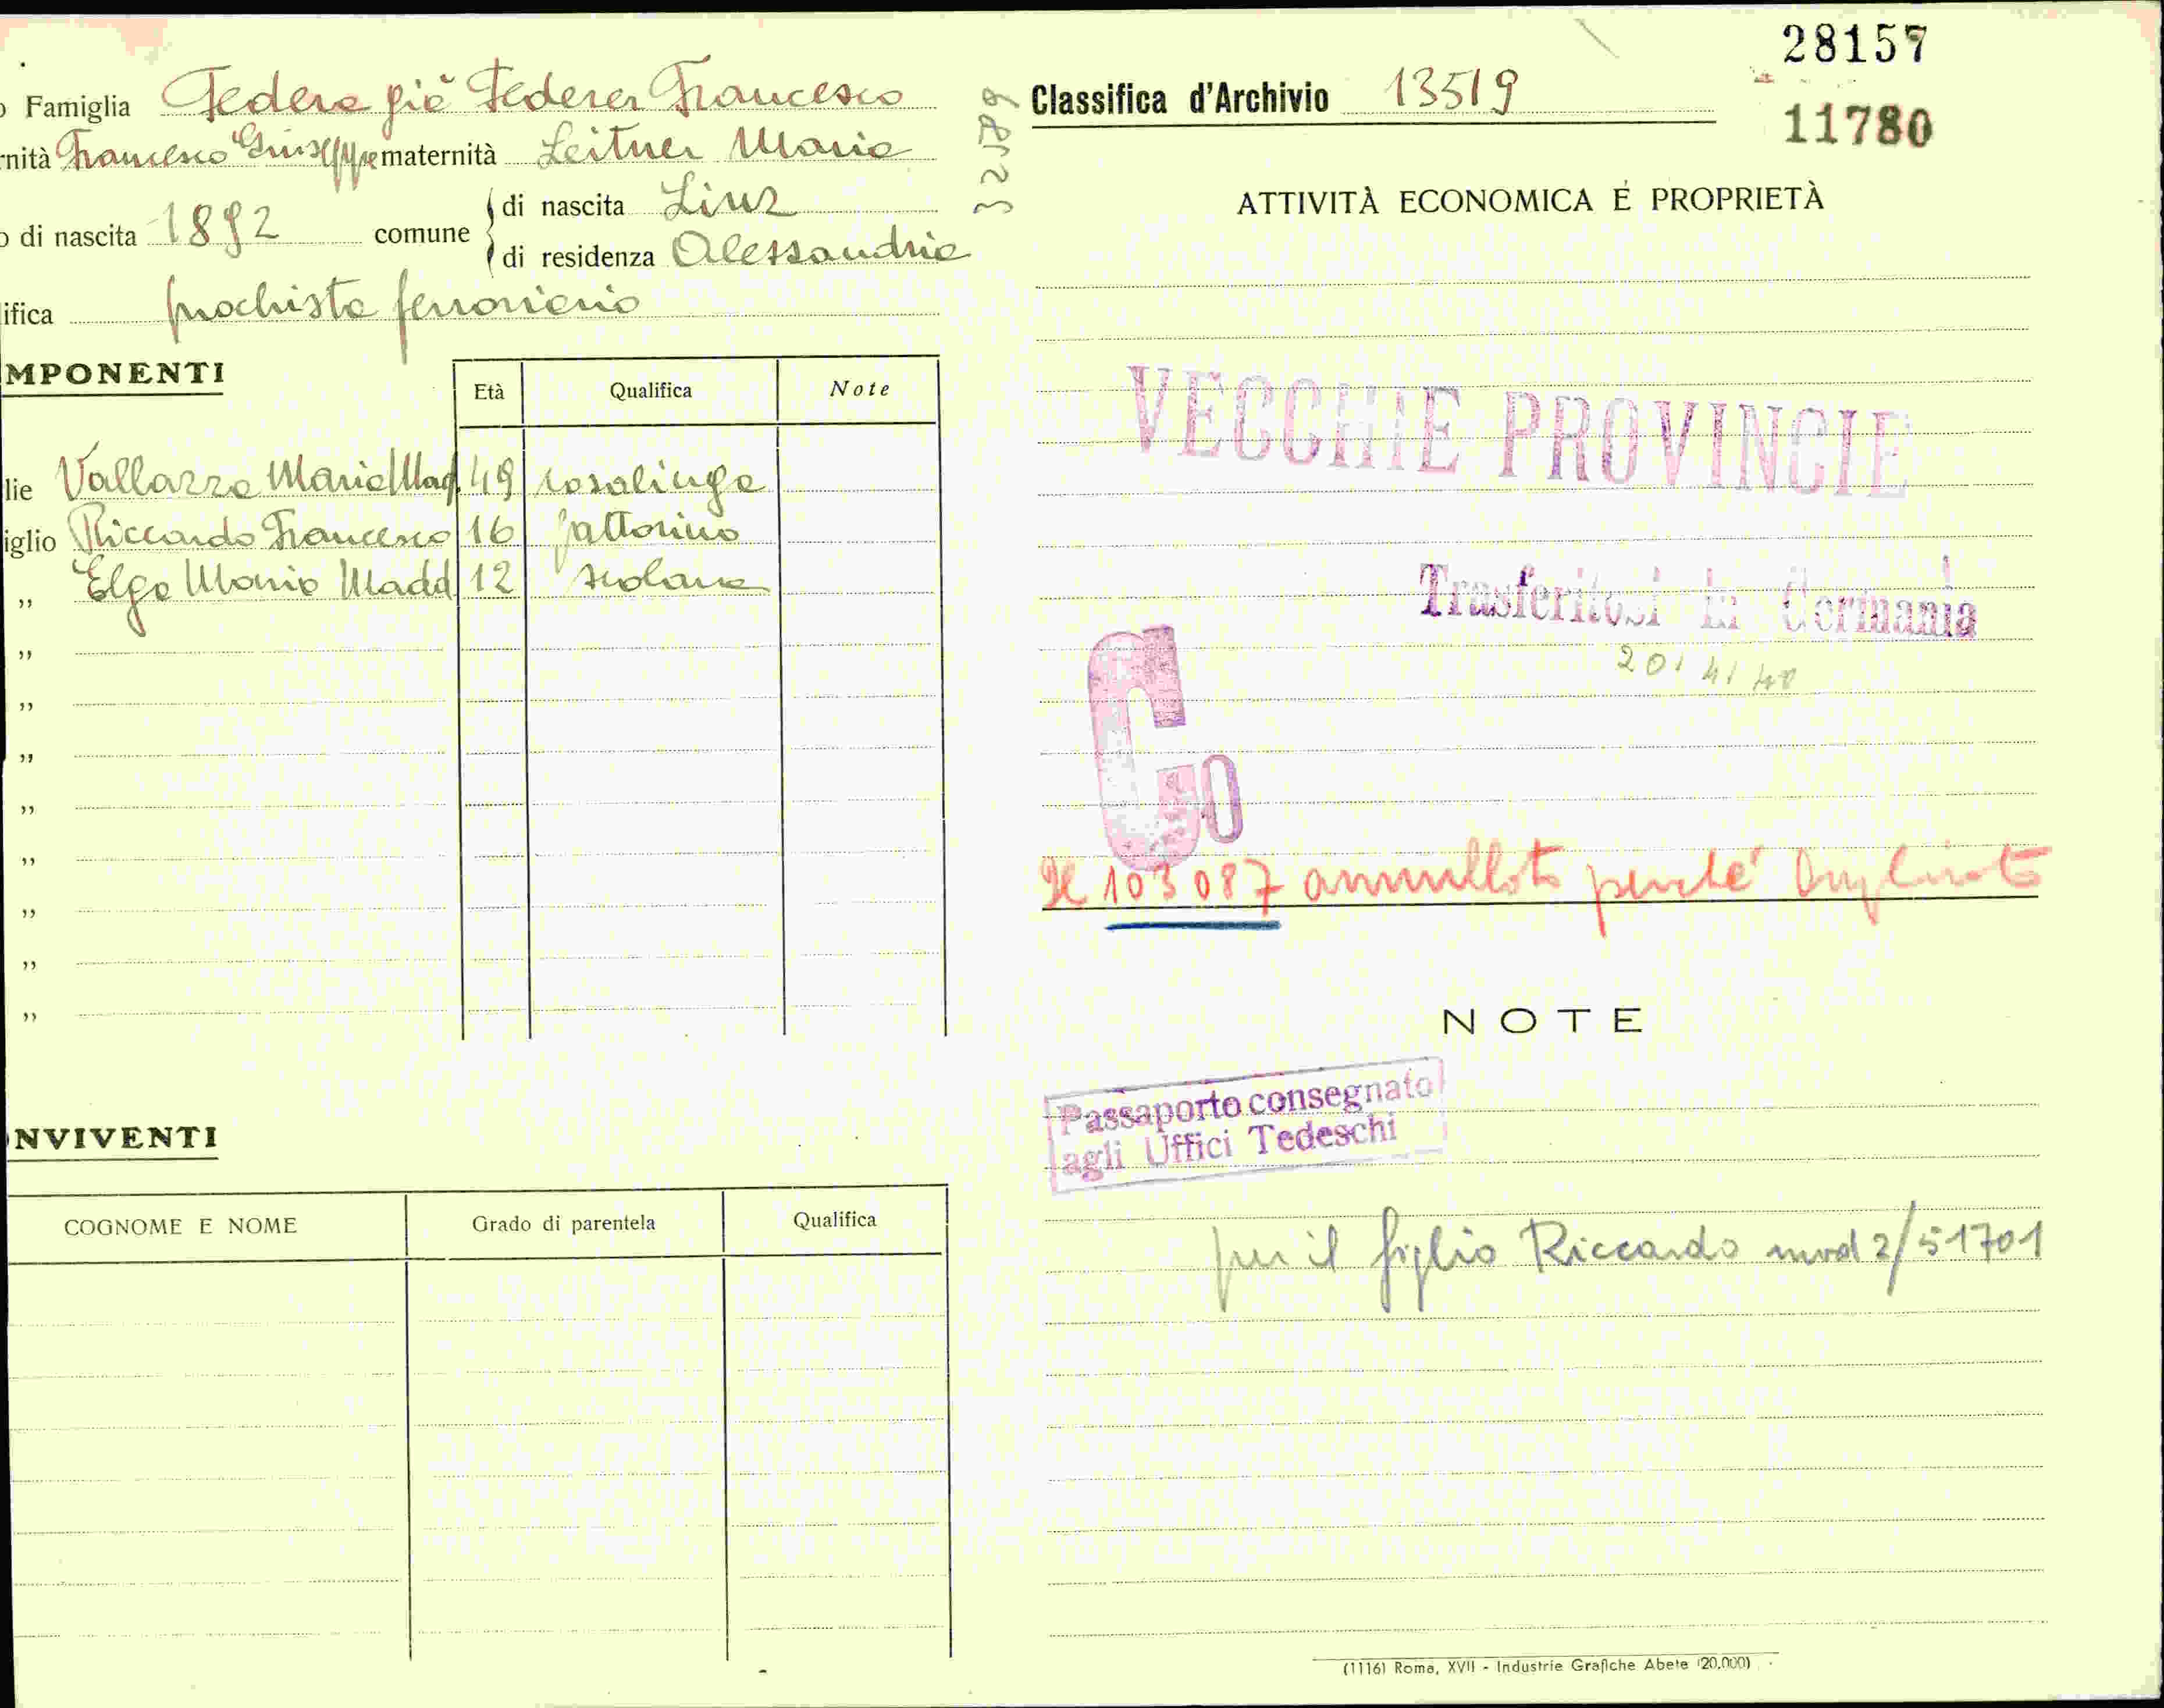 o Famiglia Federa già Federer Francesco
rnità Francesco Giuseppe maternità Leitner Maria
di nascita Linz
o di nascita 1892 comune
di residenza Alessandria
ifica fuochista ferroviario
MPONENTI
Età Qualifica Note
lie Vallazza Maria Mad. 49 casalinga
iglio Riccardo Francesco 16 fattorino
„ Elga Maria Madd 12 scolara
„
„
„
„
„
„
„
„
NVIVENTI
COGNOME E NOME Grado di parentela Qualifica
28157
Classifica d'Archivio 13519
11780
ATTIVITÀ ECONOMICA E PROPRIETÀ
VECCHIE PROVINCIE
Trasferitosi in Germania
20/4/40
G
Il 103087 annullato perché duplicato
NOTE
Passaporto consegnato
agli Uffici Tedeschi
per il figlio Riccardo mod 2/51701
(1116) Roma, XVII - Industrie Grafiche Abete (20.000)